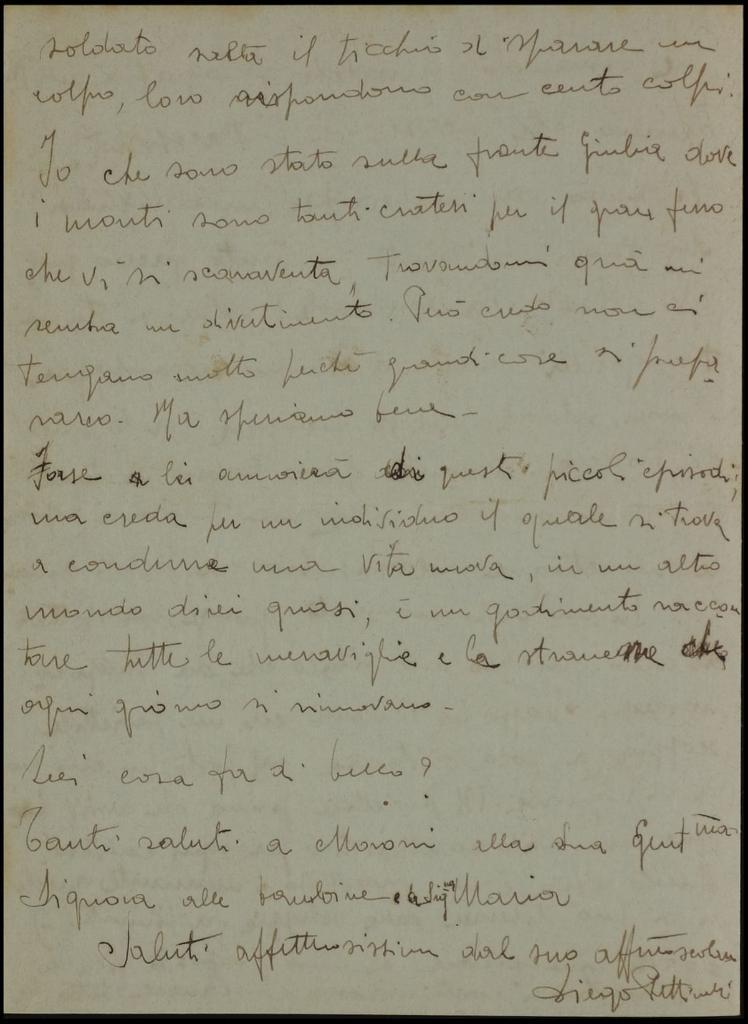 soldato salta il ticchio di sparare un
colpo, loro rispondono con cento colpi.
Io che sono stato sulla fronte Giulia dove
i monti sono tanti crateri per il gran ferro
che vi si scaraventa, trovandomi quà mi
sembra un divertimento. Però credo non ci
tengano molto perchè grandi cose si prepa
rano. Ma speriamo bene -
Forse a lei annoierà di questi piccoli episodi;
ma creda per un individuo il quale si trova
a condurre una vita nuova, in un altro
mondo direi quasi, è un godimento raccon
tare tutte le meraviglie e la strane che
ogni giorno si rinnovano -
Lei cosa fa di bello?
Tanti saluti a Moroni alla sua Gent ma
Signora alle bambine e a Sig na Maria
Saluti affettuosissimi dal suo aff mo scolaro
Diego